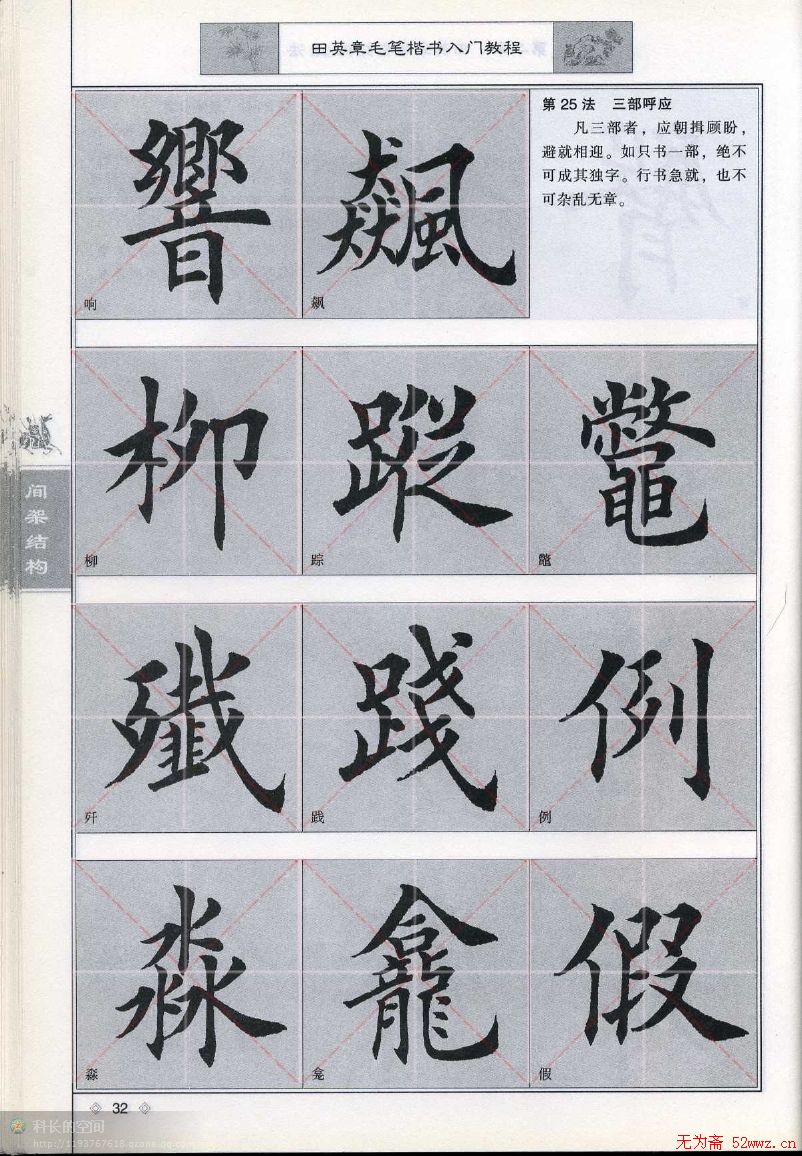 田英章毛笔楷书入门教程
第25法　三部呼应
凡三部者，应朝揖顾盼，
避就相迎。如只书一部，绝不
可成其独字。行书急就，也不
可杂乱无章。
響 飆
响 飙
柳 蹤 鼈
柳 踪
殲 踐 例
歼 践 例
淼 龕 假
淼 龛 假
间架结构
32
科长的空间
http://1193767618.qzone.qq.com
无为斋 52wwz.cn